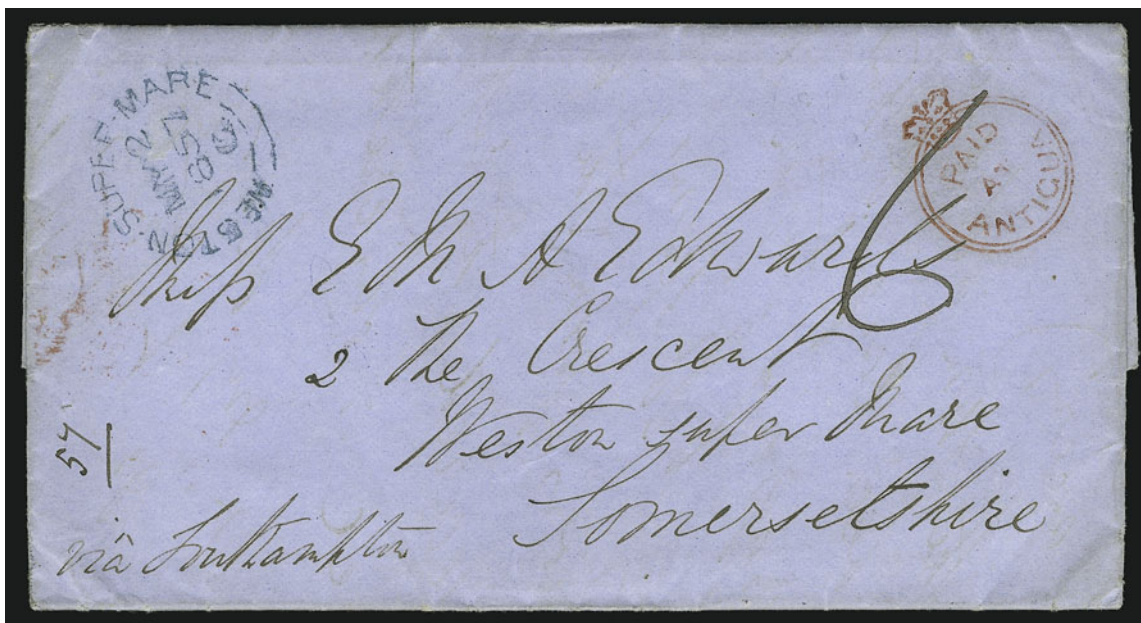 WESTON SUPER-MARE
MY 2
1857
G
PAID
AT
ANTIGUA
6
Miss E M A Edwards
2 The Crescent
Weston super Mare
Somersetshire
57
via Southampton